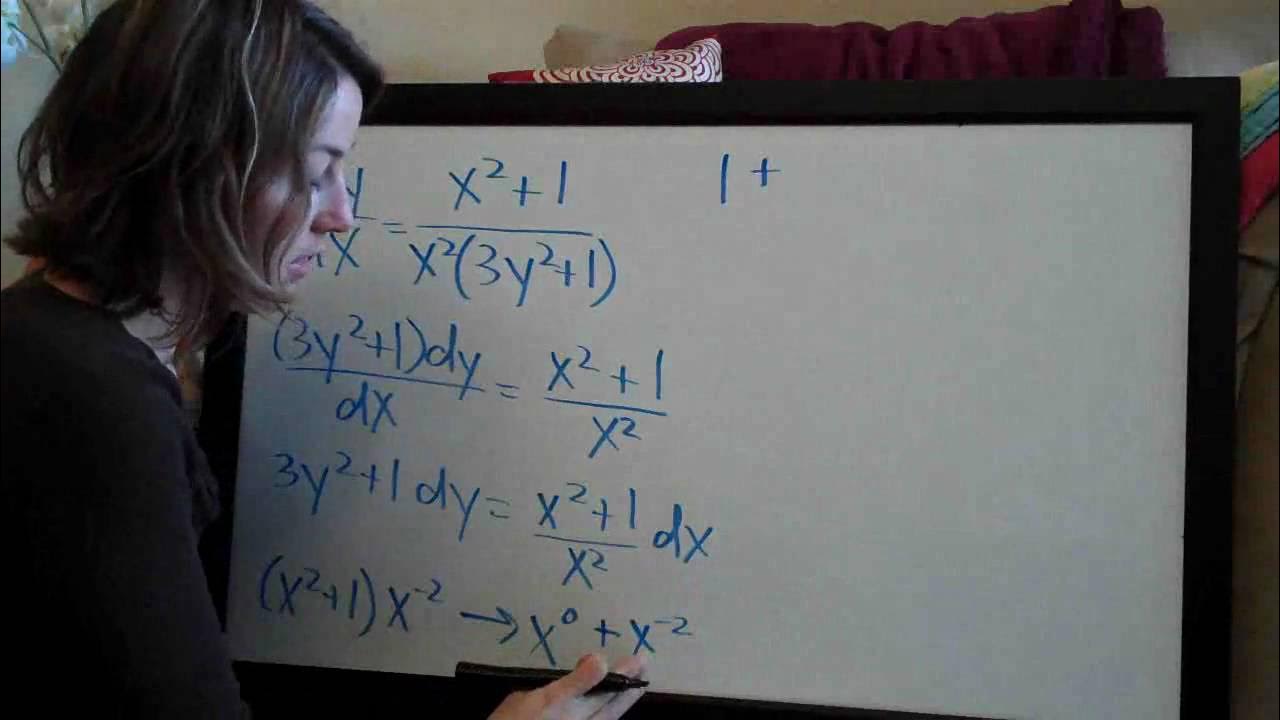 y/x = x²+1 / x²(3y²+1)
1 +
(3y²+1)dy / dx = x²+1 / x²
3y²+1 dy = x²+1 / x² dx
(x²+1)x⁻² → x⁰ + x⁻²